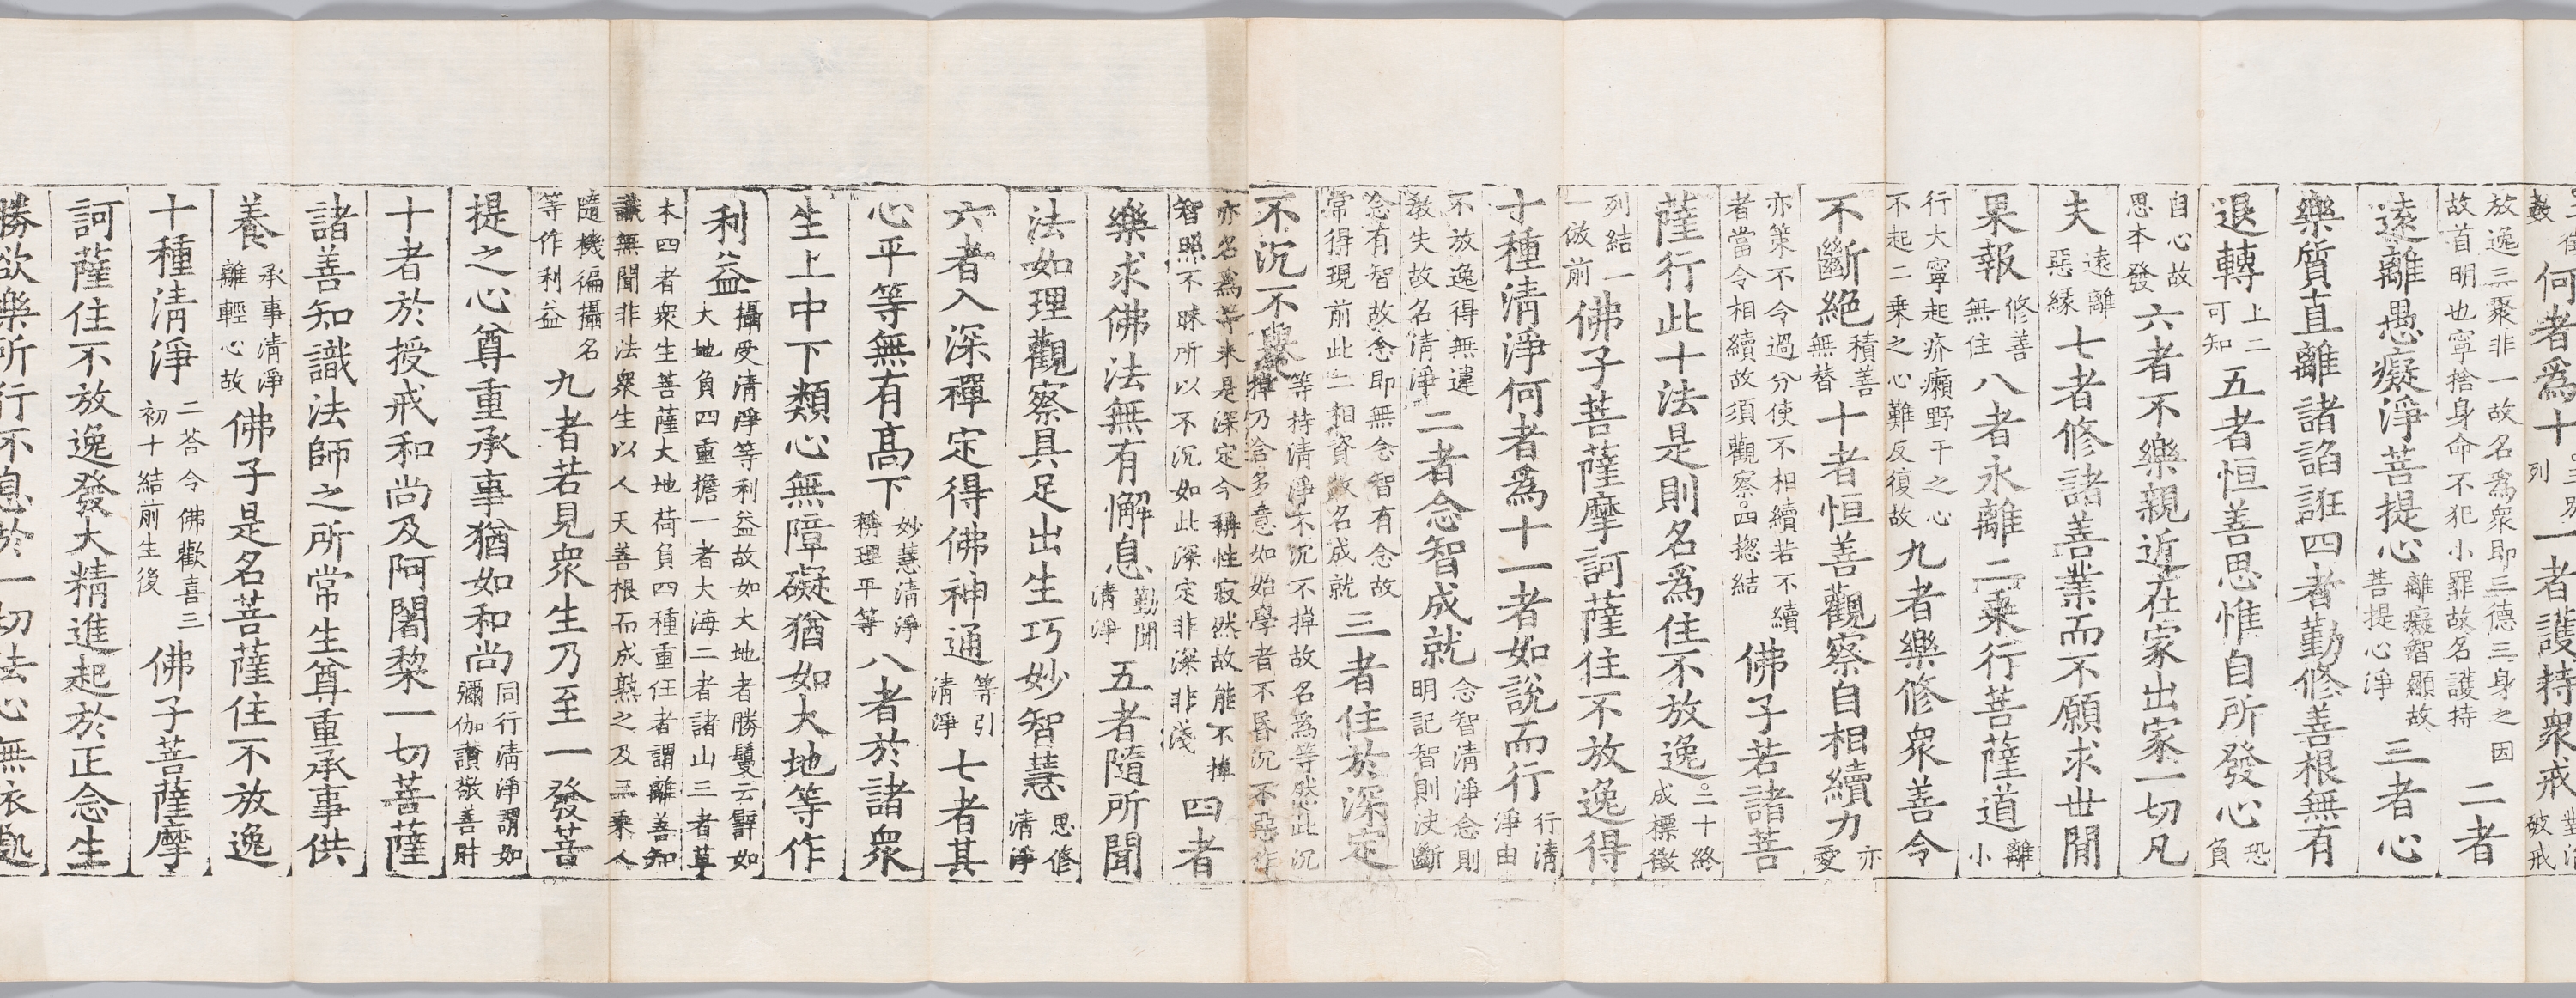 何者爲十
列
一者護持衆戒
破戒
放逸三聚非一故名爲衆即三德三身之因
故首明也寧捨身命不犯小罪故名護持
二者
遠離愚癡淨菩提心
離癡智顯故
菩提心淨
三者心
樂質直離諸諂誑四者勤修善根無有
退轉
上二
可知
五者恒善思惟自所發心
恐
負
自心故
思本發
六者不樂親近在家出家一切凡
夫
遠離
惡緣
七者修諸善業而不願求世間
果報
修善
無住
八者永離二乘行菩薩道
離
小
行大寧起疥癩野干之心
不起二乘之心難反復故
九者樂修衆善令
不斷絶
積善
無替
十者恒善觀察自相續力
亦
愛
亦策不令過分使不相續若不續
者當令相續故須觀察四揔結
佛子若諸菩
薩行此十法是則名爲住不放逸
二十終
成標徵
列結一
一倣前
佛子菩薩摩訶薩住不放逸得
十種清淨何者爲十一者如說而行
行清
淨由
不放逸得無違
教失故名清淨
二者念智成就
念智清淨念則
明記智則決斷
念有智故念即無念智有念故
常得現前此二相資故名成就
三者住於深定
不沉不舉
等持清淨不沉不掉故名爲等然此沉
掉乃含多意如始學者不昏沉不惡作
亦名爲等未是深定今稱性寂然故能不掉
智照不昧所以不沉如此深定非深非淺
四者
樂求佛法無有懈息
勤聞
清淨
五者隨所聞
法如理觀察具足出生巧妙智慧
思修
清淨
六者入深禪定得佛神通
等引
清淨
七者其
心平等無有高下
妙慧清淨
稱理平等
八者於諸衆
生上中下類心無障礙猶如大地等作
利益
攝受清淨等利益故如大地者勝鬘云譬如
大地負四重擔一者大海二者諸山三者草
木四者衆生菩薩大地荷負四種重任者謂離善知
識無聞非法衆生以人天善根而成熟之及三乘人
隨機徧攝名
等作利益
九者若見衆生乃至一發菩
提之心尊重承事猶如和尚
同行清淨謂如
彌伽讚敬善財
十者於授戒和尚及阿闍黎一切菩薩
諸善知識法師之所常生尊重承事供
養
承事清淨
離輕心故
佛子是名菩薩住不放逸
十種清淨
二荅令佛歡喜三
初十結前生後
佛子菩薩摩
訶薩住不放逸發大精進起於正念生
勝欲樂所行不息於一切法心無依處